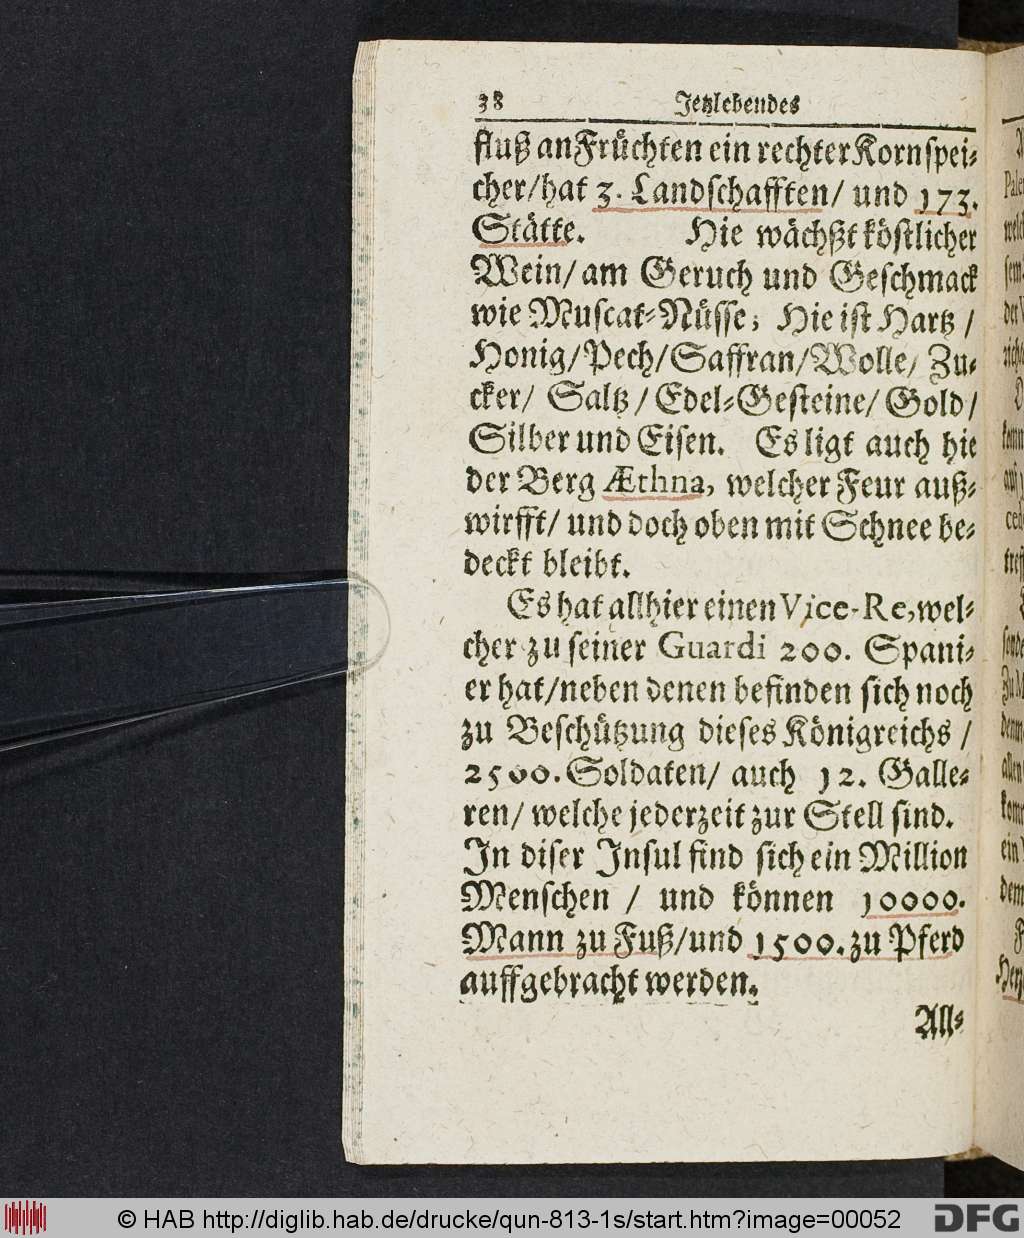 38 Jetzlebendes
fluß an Früchten ein rechter Kornspei-
cher/hat 3. Landschafften/ und 173.
Stätte. Hie wächßt köstlicher
Wein/ am Geruch und Geschmack
wie Muscat-Nüsse; Hie ist Hartz /
Honig/Pech/Saffran/Wolle/ Zu-
cker/ Saltz / Edel-Gesteine/ Gold /
Silber und Eisen. Es ligt auch hie
der Berg Æthna, welcher Feur auß-
wirfft/ und doch oben mit Schnee be-
deckt bleibt.
Es hat allhier einen Vice-Re, wel-
cher zu seiner Guardi 200. Spani-
er hat/neben denen befinden sich noch
zu Beschützung dieses Königreichs /
2500. Soldaten/ auch 12. Galle-
ren/ welche jederzeit zur Stell sind.
In diser Insul find sich ein Million
Menschen / und können 10000.
Mann zu Fuß/und 1500. zu Pferd
auffgebracht werden.
All-
© HAB http://diglib.hab.de/drucke/qun-813-1s/start.htm?image=00052
DFG